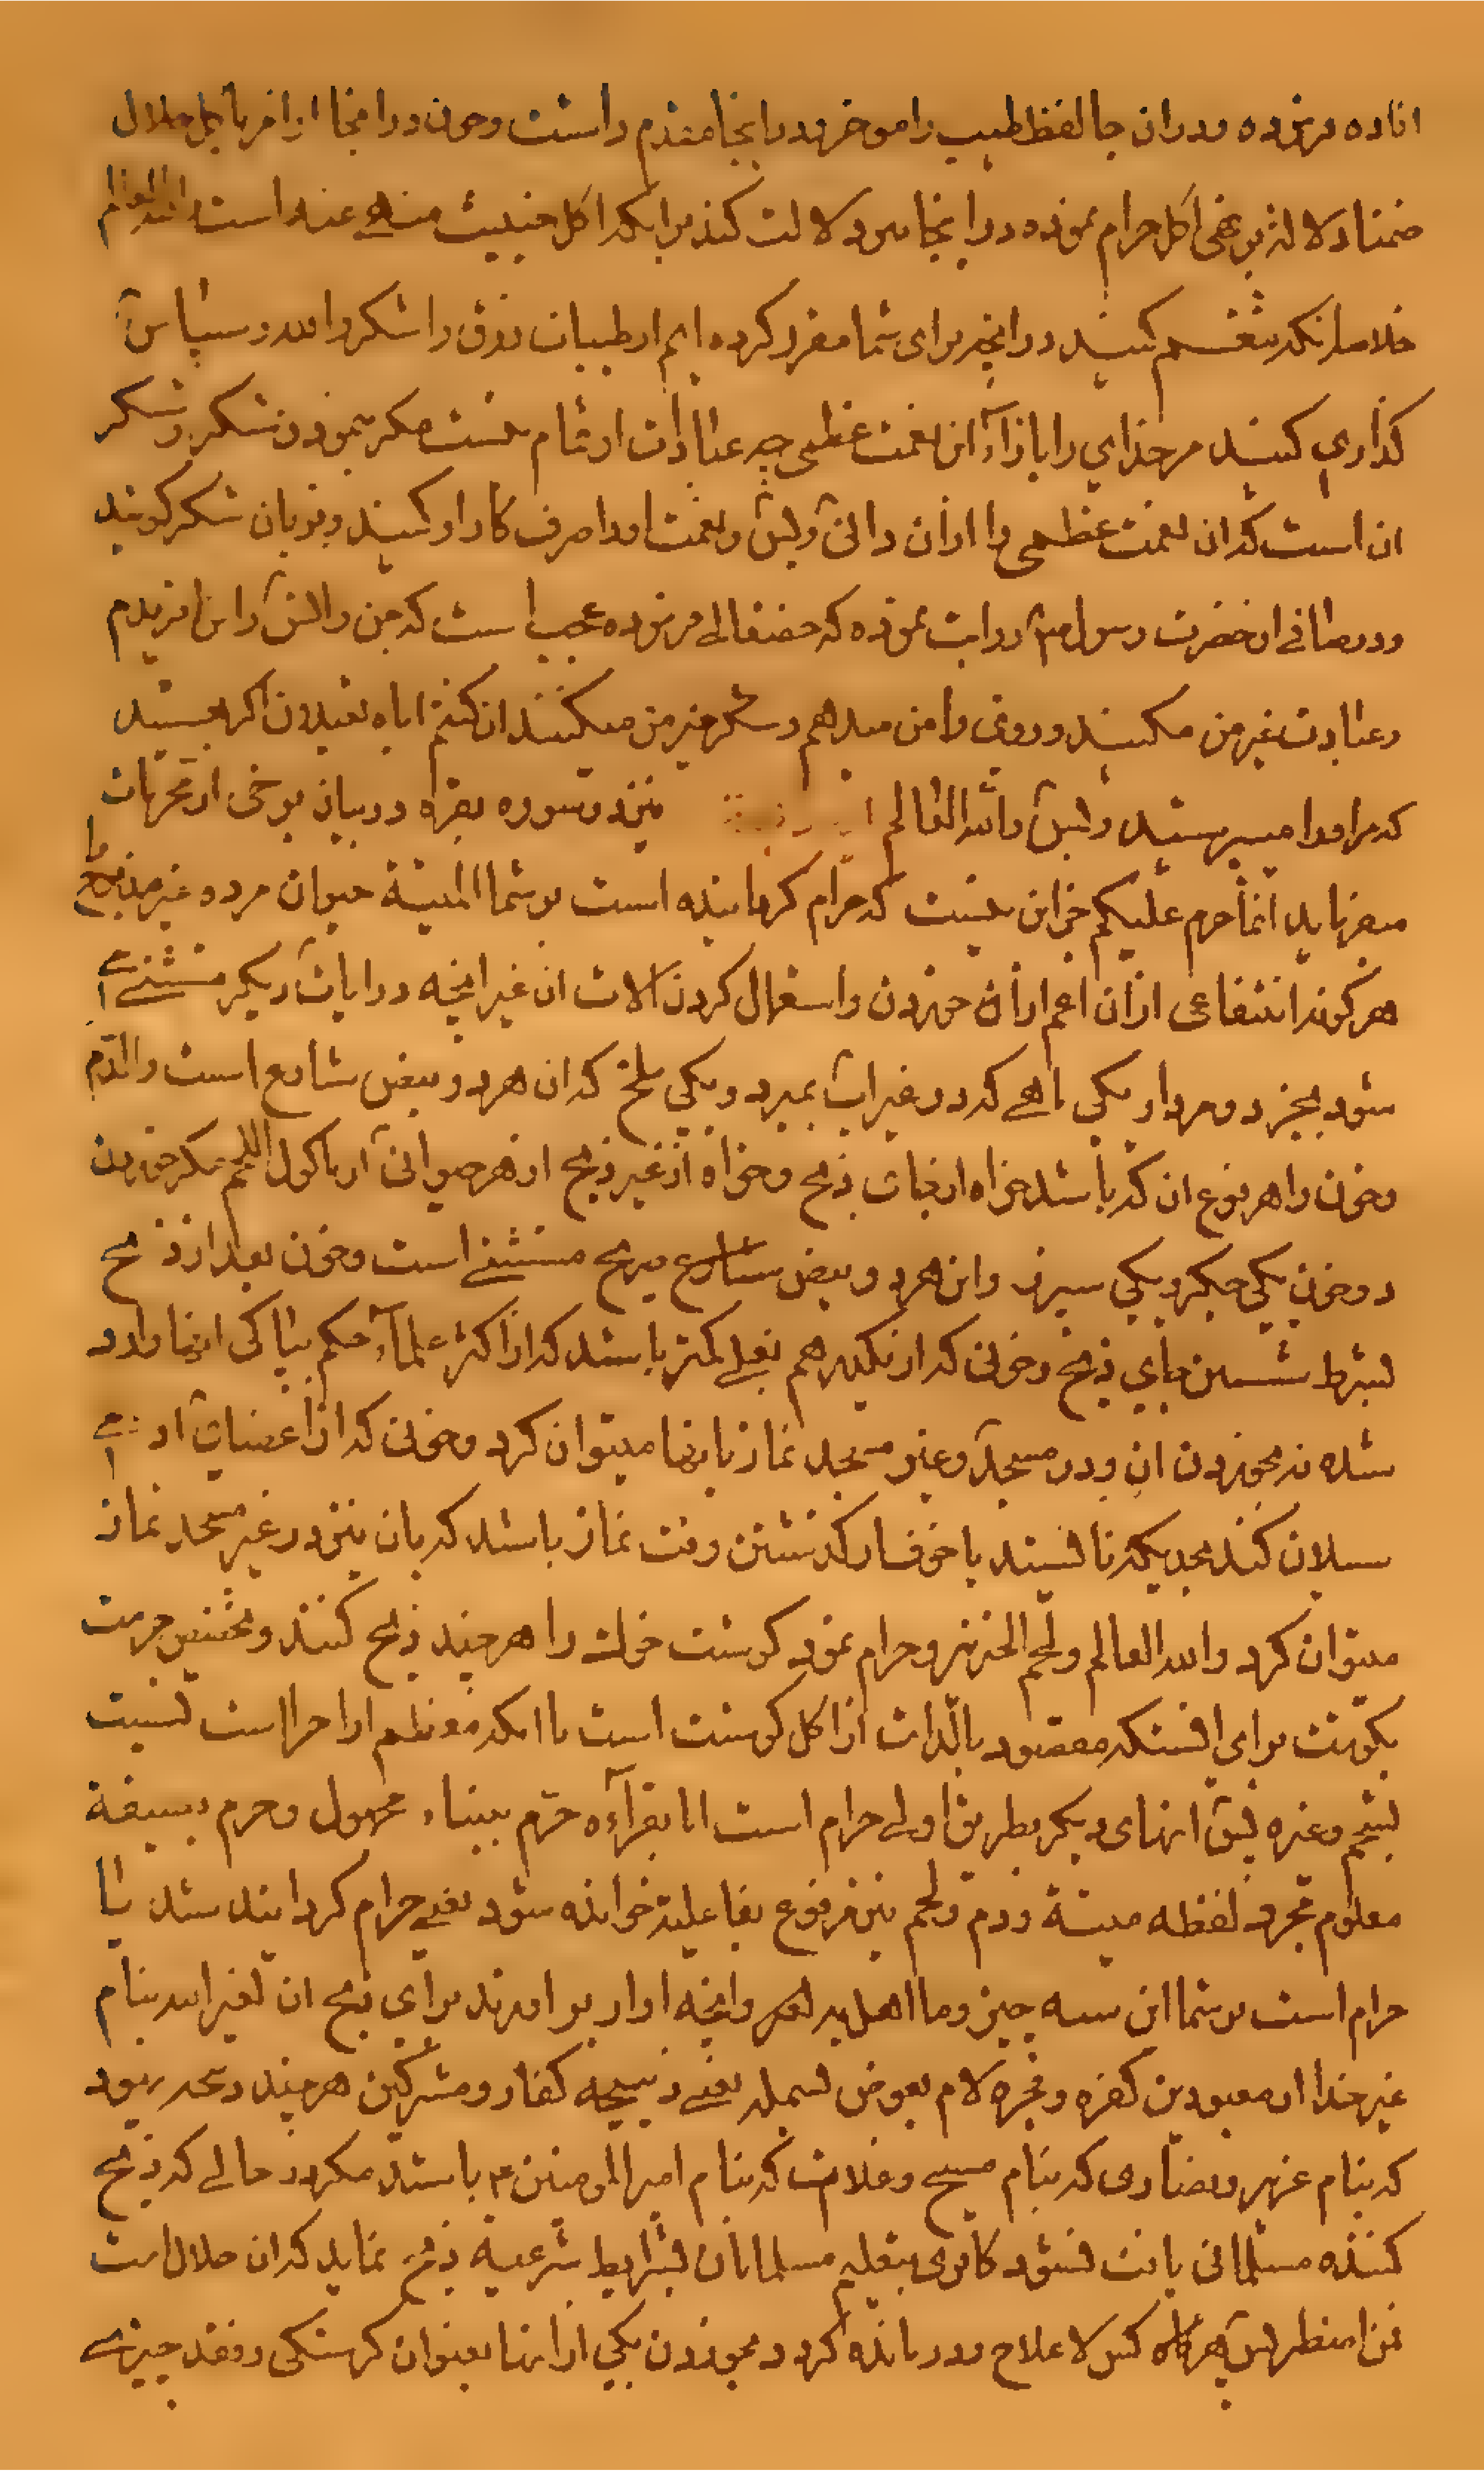 افاده فرموده و در ان جا لفظ طیب را موخر و در اینجا مقدم داشت و چون در انجا امر باکل حلال
ضمنا دلالة بر نهی اکل حرام نموده در اینجا نیز دلالت کند بر اینکه اکل خبیث منهی عنه است و الله العالم
خلاصه انکه متنعم کنید در انچه برای شما مقرر کرده ایم از طیبات رزق و اشکروا لله و سپاس
کذاری کنید مر خدای را بازآء این نعمت عظمی چه عبادات او تمام نیست مکر بنمودن شکر و شکر
ان است که ان نعمت عظمی را از ان دانی و بس و نعمت او را صرف کار او کنید و بزبان شکر کوئید
و در صافی از حضرت رسول ص روایت نموده که حضتعالی فرموده عجب است که جن و انس را من افریدم
و عبادت غیر من میکنند و روزی را من میدهم و شکر غیر من میکنند ان کنتم ایاه تعبدون اکر هستید
که مر او را میپرستید و بس و الله العالم نیز در سوره بقره در بیان برخی از محرمات
میفرماید انما حرم علیکم جز این نیست که حرام کردانیده است بر شما المیتة حیوان مرده و غیر مذبوح را
هر کونه انتفاعی از ان اعم از ان خوردن و استعمال کردن الات ان غیر انچه در ایات دیکر مستثنی
شود بجز دو مردار یکی ماهی که در غیر اب بمیرد و یکی ملخ که ان هر دو بنص شارع است و الدم
و خون را هر نوع ان که باشد خواه از خبات ذبح و خواه از غیر ذبح از هر حیوانی از ماکول اللحم مکر خوردن
دو خون یکی جکر و یکی سپرز و این هر دو بنص شارع صریح مستثنی است و خون بعد از ذبح
بشرط شستن جای ذبح و خونی که از نکیدرهم بغلی کمتر باشد که از اکثر علمآء حکم بپاکی انها وارد
شده نه بخوردن ان و در مسجد و غیر مسجد نماز با انها میتوان کرد و خونی که از اعضای او
سیلان کند بحدیکه نه ایستد یا خوف از کذشتن وقت نماز باشد که بان نیز در غیر مسجد نماز
میتوان کرد و الله العالم و لحم الخنزیر و حرام نمود کوشت خوک را هر چند ذبح کنند و تخصیص حرمت
بکوشت برای انستکه مقصود بالذات از اکل کوشت است یا انکه معظم اجزا است نسبت
بشحم و غیره پس انهای دیکر بطریق اولی حرام است اما بقرآءه حرم ببناء مجهول و حرم بصیغة
معلوم مجرد لفظه میتة و دم و لحم نیز مرفوع بفاعلیة خوانده شود یعنی حرام کردانیده شد یا
حرام است بر شما این سه چیز و ما اهل به لغیر و انچه اواز بر اورند برای ذبح ان لغیر الله بنام
غیر خدا از معبودین کفره و فجره لام بعوض بسمله یعنی ذبیحه کفار و مشرکین هر چند و چه یهود
که بنام عزیر و نصاری که بنام مسیح و غلات که بنام امیر المومنین ع باشد مکر در حالی که ذبح
کننده مسلمانی یافت نشود کافری بتعلیم مسلمانان بشرایط شرعیه ذبح نماید که ان حلال است
فمن اضطر پس هر کاه کس لا علاج و درمانده کردد بخوردن یکی از اینها بعنوان کرسنکی و فقد چیزی